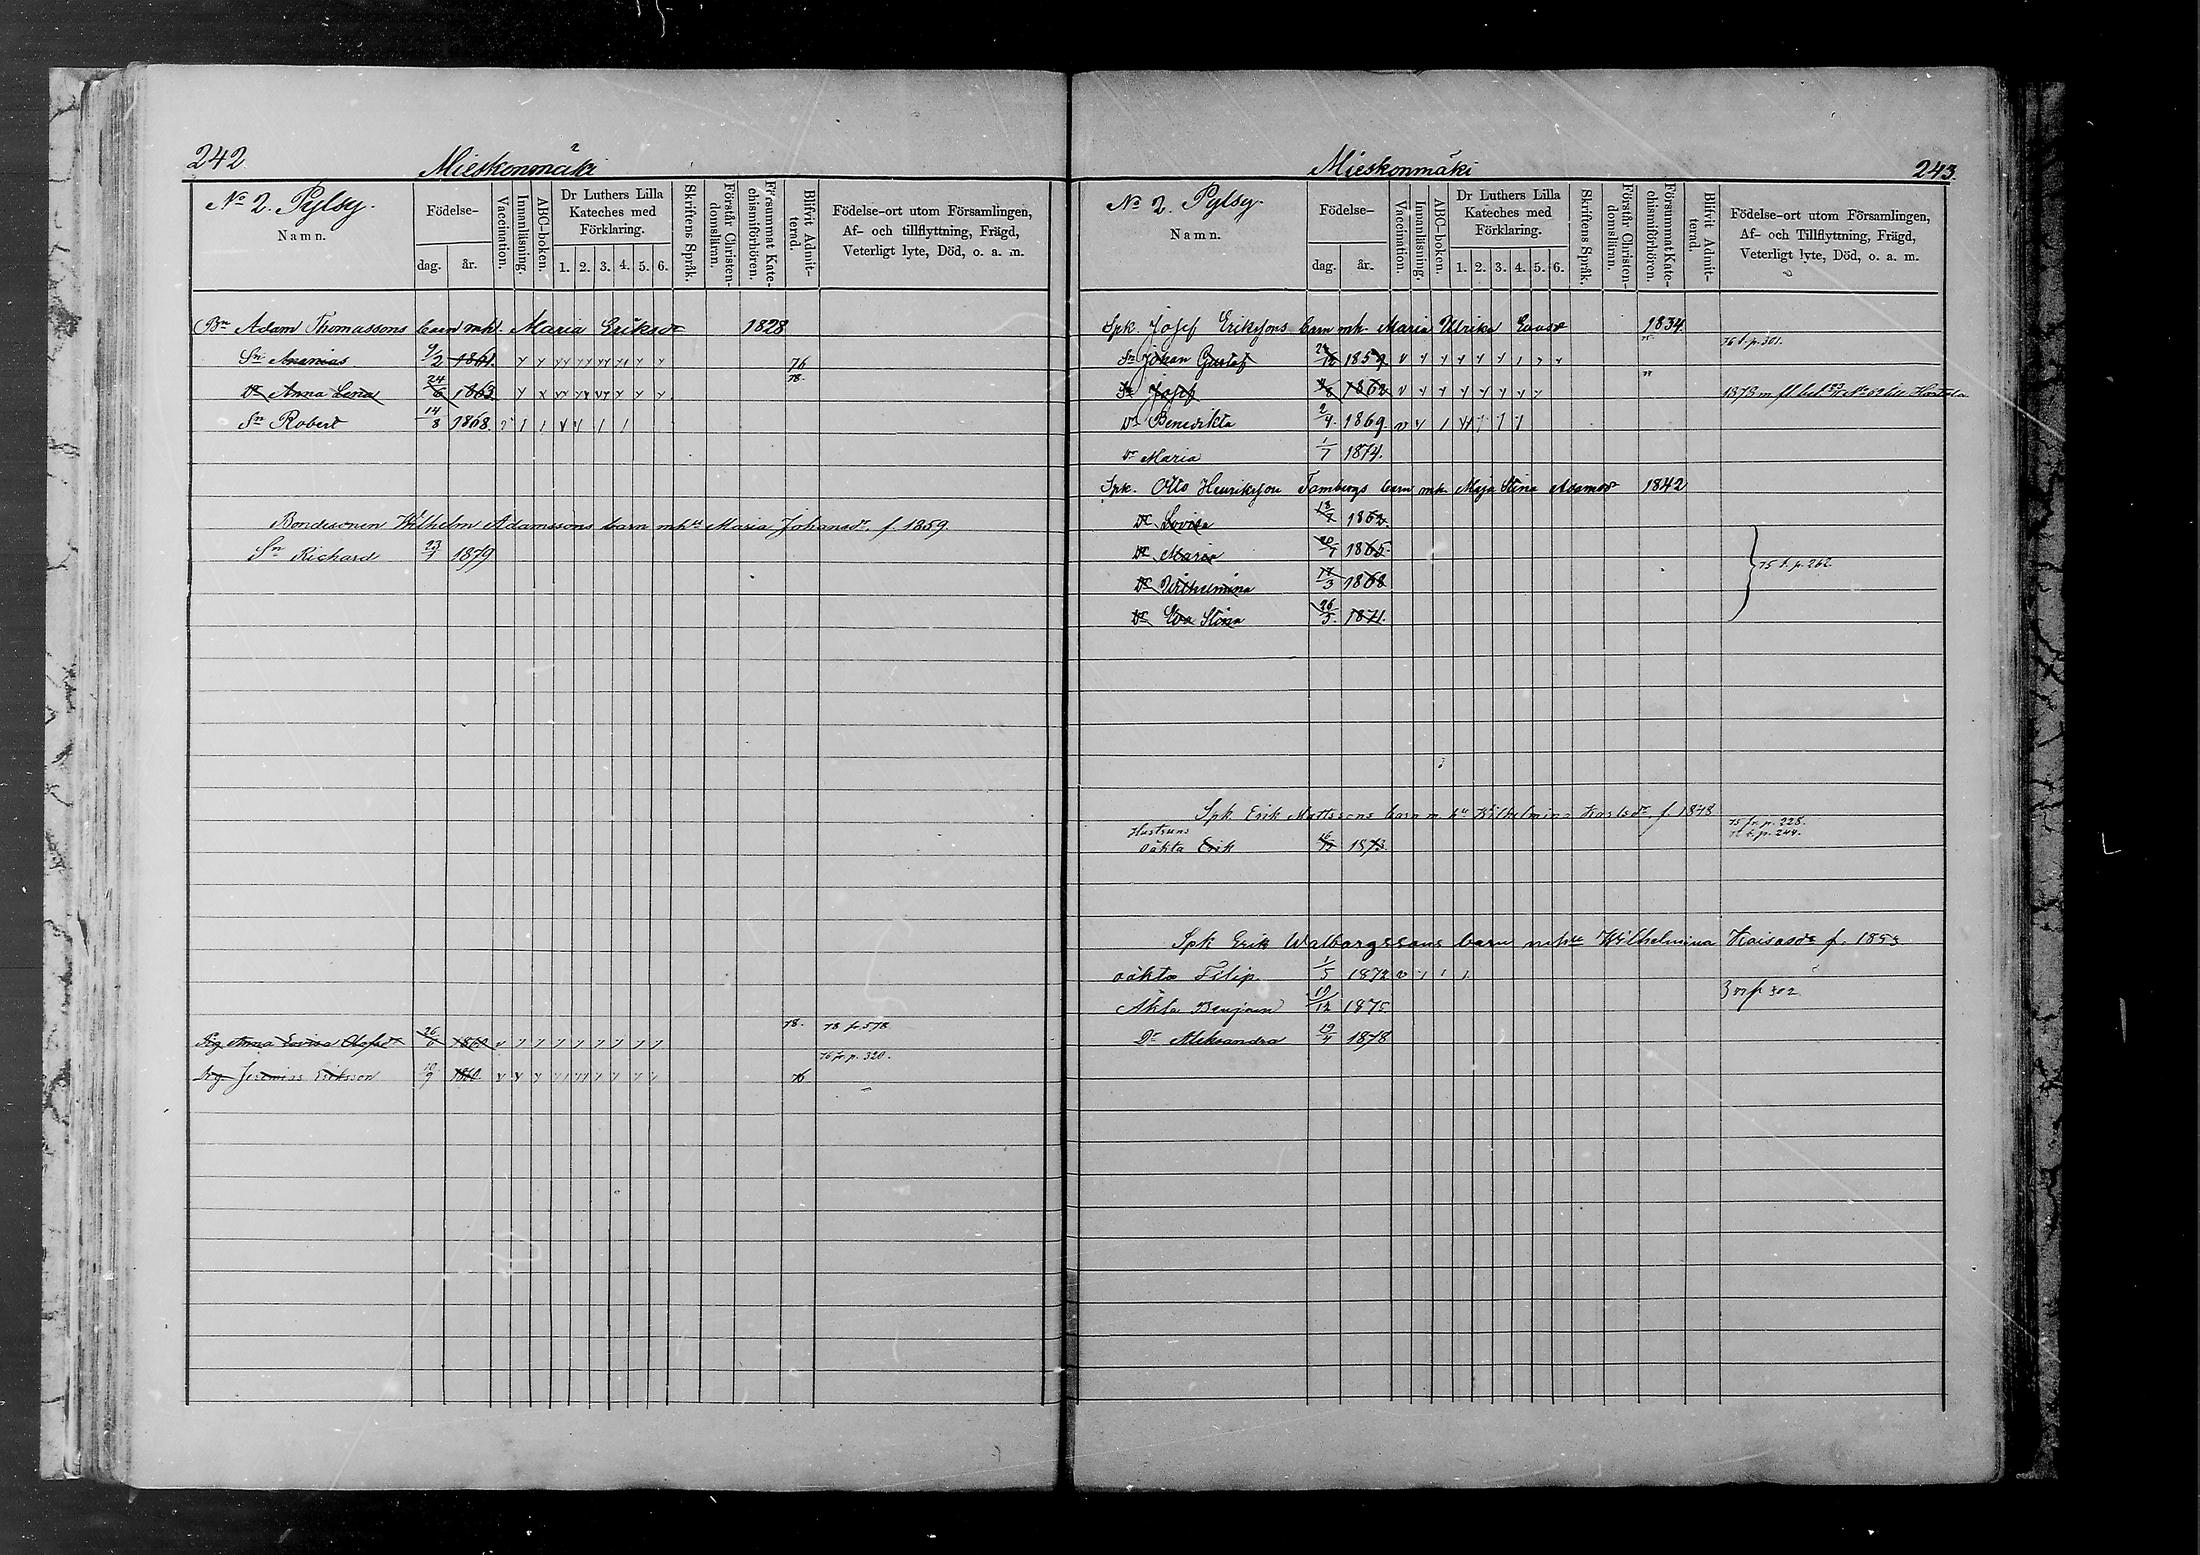 242
Mieskonmäki
No 2. Pylsy.
Namn.
Födelse-
dag.
år.
Vaccination.
Innanläsning.
ABC-boken.
Dr Luthers Lilla
Kateches med
Förklaring.
1. 2. 3. 4. 5. 6.
Skriftens Språk.
Förstår Christen-
domsläran.
Försummat Kate-
chismiförhören.
Blifvit Admit-
terad.
Födelse-ort utom Församlingen,
Af- och tillflyttning, Frägd,
Veterligt lyte, Död, o. a. m.
Bn Adam Thomassons barn mh. Maria Eriksdr 1828
Sn Ananias 9/2 1861. 76
Dr Anna Lena 24/6 1863 78.
Sn Robert 14/8 1868.
Bondesonen Wilhelm Adamssons barn mhu Maria Johansdr, f. 1859.
Sn Richard 23/1 1879
78. 78 fr 578
Pig Anna Lovisa Olofsdr 26/6 1860
76 fr p. 320.
Drg Jeremias Eriksson 10/9 1860. 76
Mieskonmäki
243.
No 2. Pylsy.
Namn.
Födelse-
dag.
år.
Vaccination.
Innanläsning.
ABC-boken.
Dr Luthers Lilla
Kateches med
Förklaring.
1. 2. 3. 4. 5. 6.
Skriftens Språk.
Förstår Christen-
domsläran.
Försummat Kate-
chismiförhören.
Blifvit Admit-
terad.
Födelse-ort utom Församlingen,
Af- och Tillflyttning, Frägd,
Veterligt lyte, Död, o. a. m.
Spk. Josef Erikssons barn mh. Maria Ulrika 1834.
Sn Johan Gustaf 1859. 76 t. p. 301.
Sn Josef 1862 1873 m fl bet
Dr Benedikta 2/4. 1869.
Dr Maria 1/7 1874.
Spk. Otto Henriksson Tambergs barn mh. Maja Stina Adamsdr 1842
Dr Lovisa 1862.
Dr Maria 20/1 1865.
75 t. p. 262.
Dr Wilhelmina 17/3 1868
Dr Eva Stina 26/5. 1871.
Spk Erik Mattssons barn m. hu Wilhelmina Karlsdr, f. 1848
75 fr p. 228.
Hustruns
oäkta Erik 1873. t. p. 244.
Spk Erik Walborgssons barn mhu Wilhelmina Kaisasdr f. 1853
oäkta Filip 1/5 1872
Äkta Benjam 19/12 1875
Dr Aleksandra 19/4 1878